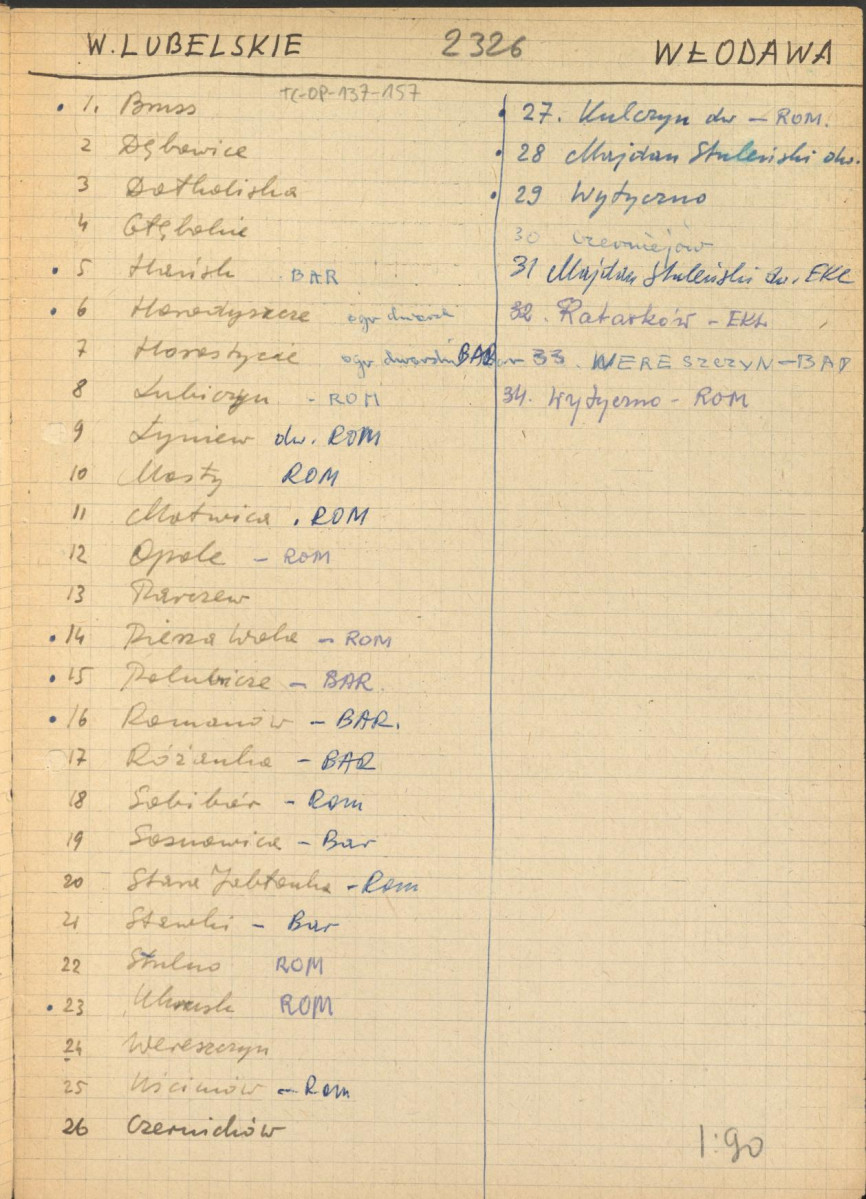 W. LUBELSKIE 2326 WŁODAWA
TC-OP-137-157
1. Bruss
2 Dębowice
3 Dothalishа
4 Głębokie
5 Hańsk BAR
6 Horodyszcze ogr dworski
7 Horostycie ogr dworski BAR
8 Lubiczyn - ROM
9 Łyniew dw. ROM
10 Mosty ROM
11 Motwica . ROM
12 Opole - ROM
13 Parczew
14 Piesza Wola - ROM
15 Polubicze - BAR.
16 Romanów - BAR.
17 Różanka - BAR
18 Sobibór - Rom
19 Sosnowica - Bar
20 Stara Jabłonka - Rom
21 Stawki - Bar
22 Stulno ROM
23 Uhrusk ROM
24 Wereszczyn
25 Uścimów - Rom
26 Czernichów
27. Kulczyn dw - ROM.
28 Majdan Stuleński dw.
29 Wytyczno
30 Czerniejów
31 Majdan Stuleński dw. EKL
32. Ratarków - EKL
33. WERESZCZYN - BAR
34. Wytyczno - ROM
1:90